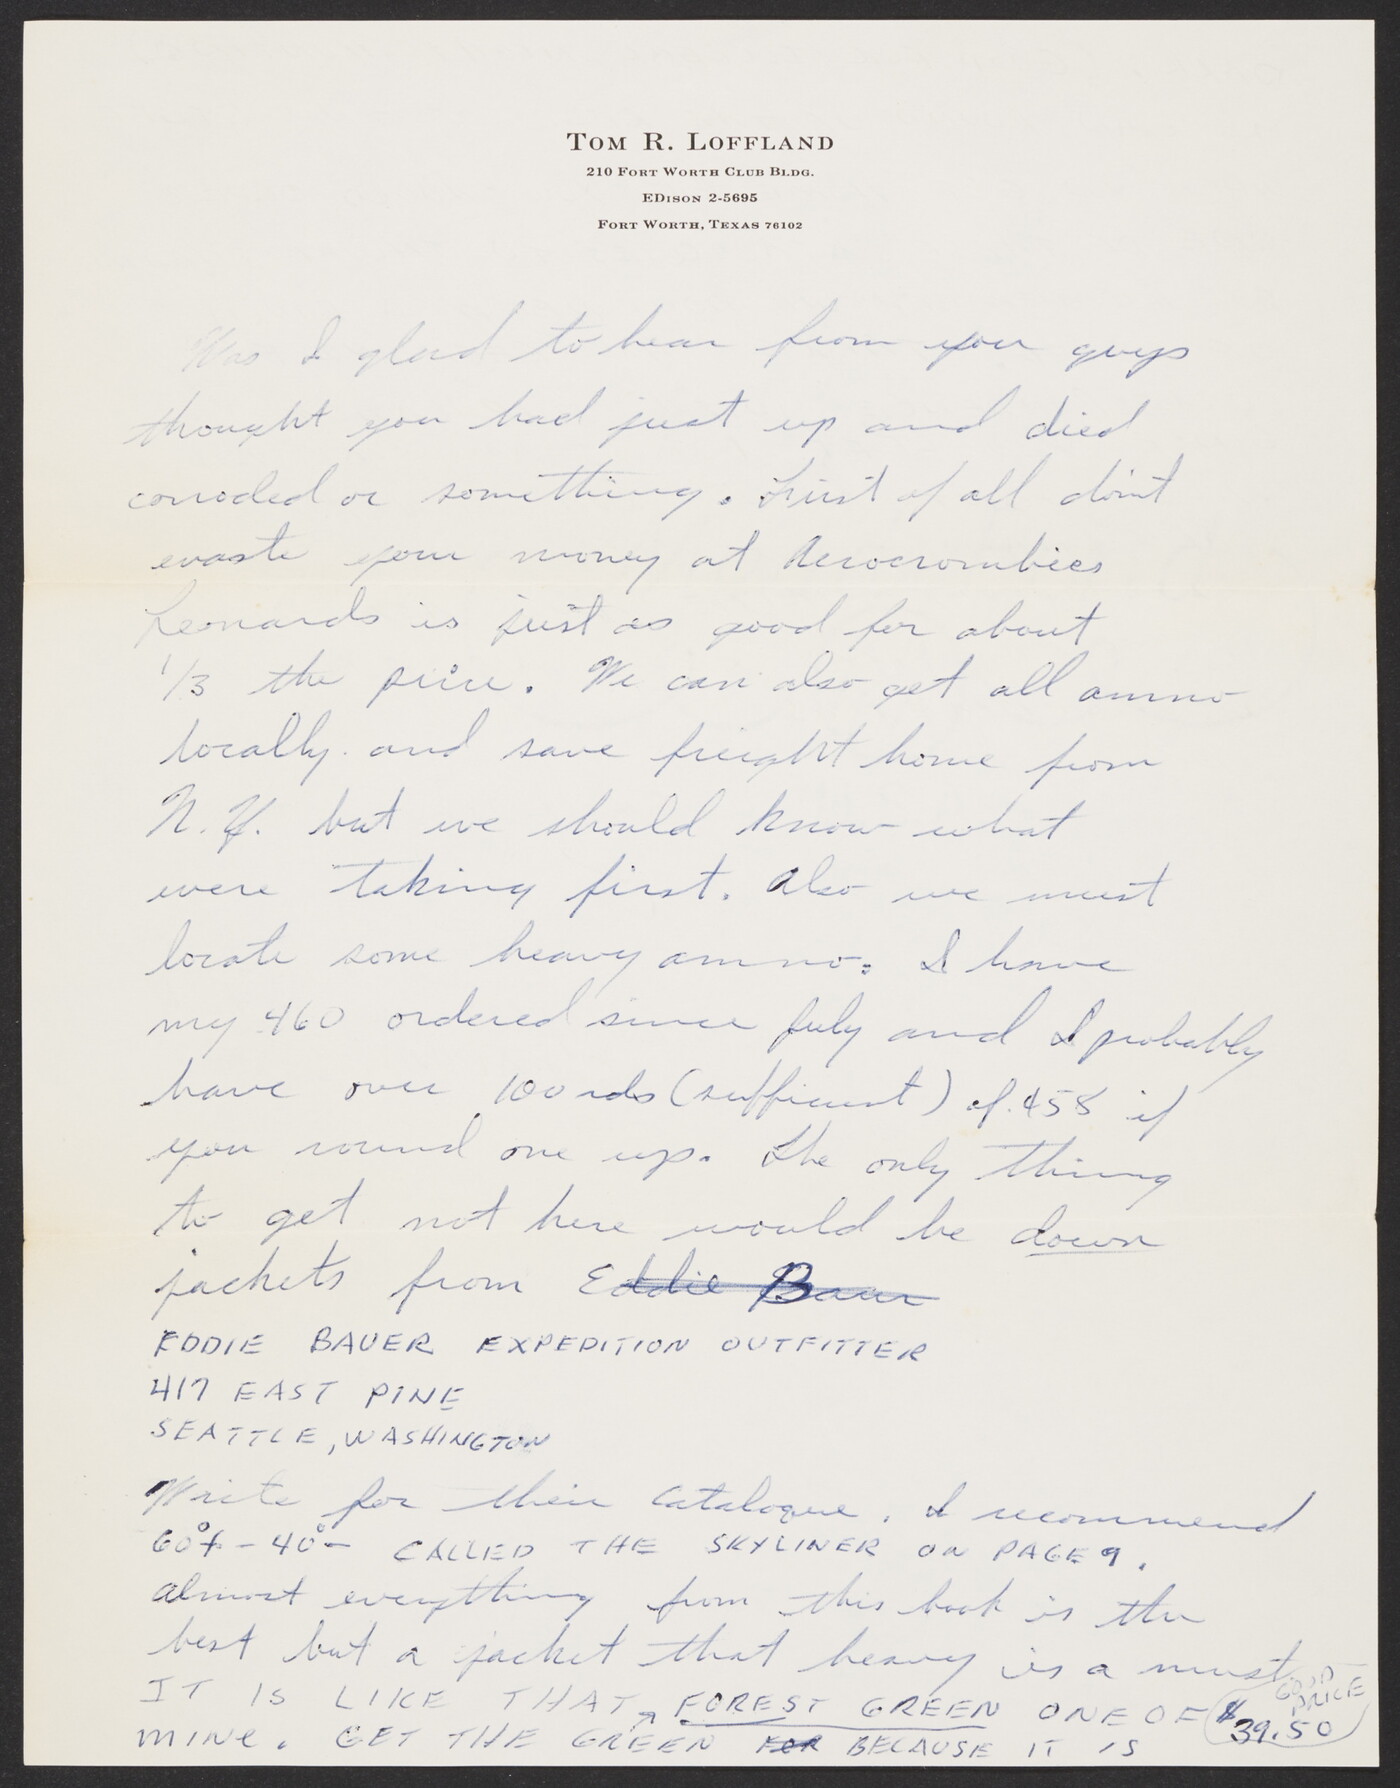 TOM R. LOFFLAND
210 FORT WORTH CLUB BLDG.
EDISON 2-5695
FORT WORTH, TEXAS 76102
Was I glad to hear from you guys
thought you had just up and died
corroded or something. First of all don't
waste your money at Aerocrombies
Leonards is just as good for about
1/3 the price. We can also get all ammo
locally and save freight home from
N.Y. but we should know what
were taking first. Also we must
locate some heavy ammo. I have
my 460 ordered since July and I probably
have over 100 rds (sufficient) of .458 if
you round one up. The only thing
to get not here would be down
jackets from Eddie Bauer
EDDIE BAUER EXPEDITION OUTFITTER
417 EAST PINE
SEATTLE, WASHINGTON
Write for their Catalogue. I recommend
60°+ - 40°- CALLED THE SKYLINER ON PAGE 9.
Almost everything from this book is the
best but a jacket that heavy is a must
IT IS LIKE THAT FOREST GREEN ONE OF
MINE. GET THE GREEN FOR BECAUSE IT IS
GOOD
PRICE
$39.50